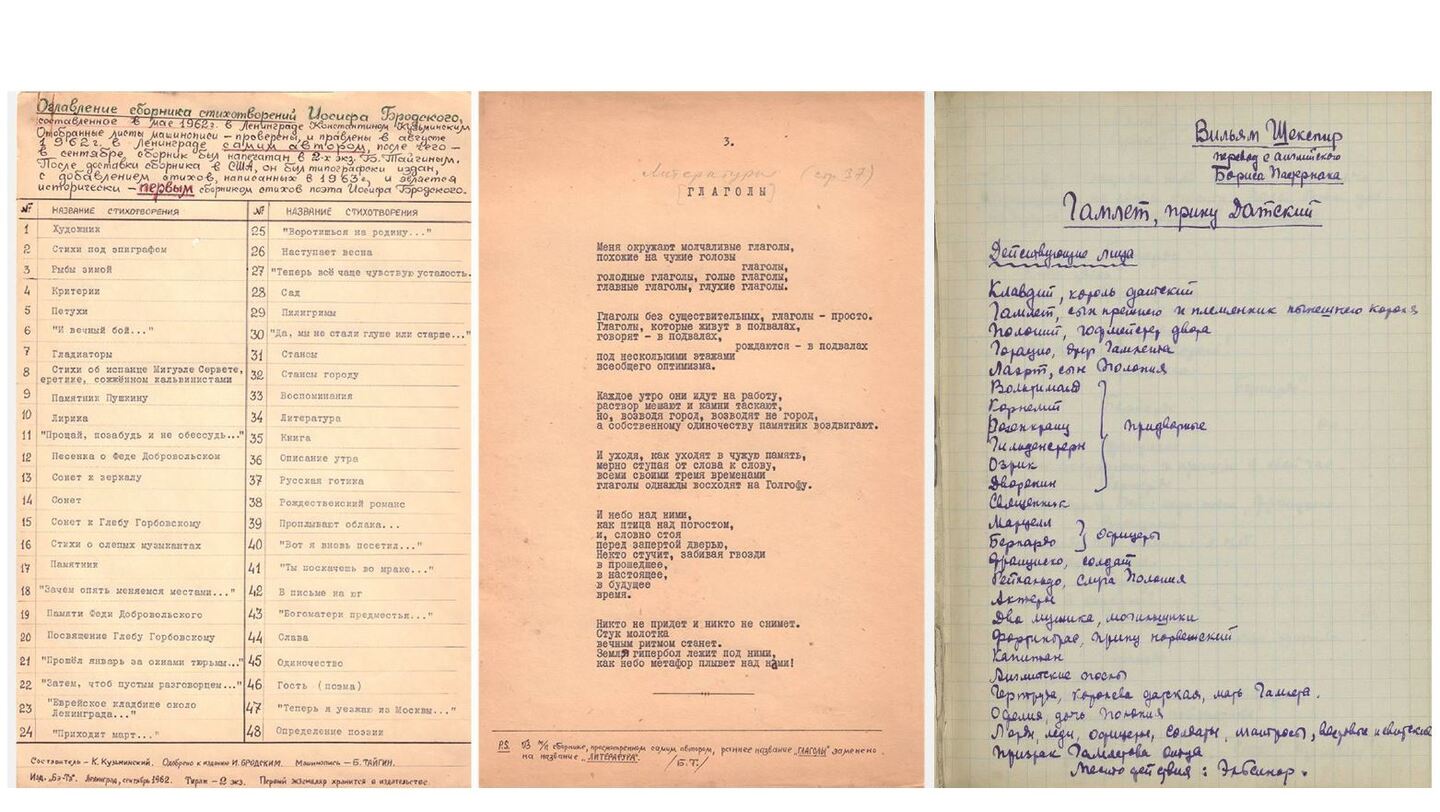 Оглавление сборника стихотворений Иосифа Бродского,
составленное в мае 1962 г. в Ленинграде Константином Кузьминским
Отобранные листы машинописи – проверены и правлены в августе
1962 г. в Ленинграде самим автором, после чего –
в сентябре, сборник был напечатан в 2-х экз. Б. Тайгиным.
После доставки сборника в США, он был типографски издан,
с добавлением стихов, написанных в 1963 г., и является
исторически – первым сборником стихов поэта Иосифа Бродского.
№ НАЗВАНИЕ СТИХОТВОРЕНИЯ
1 Художник
2 Стихи под эпиграфом
3 Рыбы зимой
4 Критерии
5 Петухи
6 "И вечный бой..."
7 Гладиаторы
8 Стихи об испанце Мигуэле Сервете,
еретике, сожжённом кальвинистами
9 Памятник Пушкину
10 Лирика
11 "Прощай, позабудь и не обессудь..."
12 Песенка о Феде Добровольском
13 Сонет к зеркалу
14 Сонет
15 Сонет к Глебу Горбовскому
16 Стихи о слепых музыкантах
17 Памятник
18 "Зачем опять меняемся местами..."
19 Памяти Феди Добровольского
20 Посвящение Глебу Горбовскому
21 "Прошёл январь за окнами тюрьмы..."
22 "Затем, чтоб пустым разговорцем..."
23 "Еврейское кладбище около
Ленинграда..."
24 "Приходит март..."
№ НАЗВАНИЕ СТИХОТВОРЕНИЯ
25 "Воротишься на родину..."
26 Наступает весна
27 "Теперь всё чаще чувствую усталость.
28 Сад
29 Пилигримы
30 "Да, мы не стали глуше или старше..."
31 Стансы
32 Стансы городу
33 Воспоминания
34 Литература
35 Книга
36 Описание утра
37 Русская готика
38 Рождественский романс
39 Проплывают облака...
40 "Вот я вновь посетил..."
41 "Ты поскачешь во мраке..."
42 В письме на юг
43 "Богоматери предместья..."
44 Слава
45 Одиночество
46 Гость (поэма)
47 "Теперь я уезжаю из Москвы..."
48 Определение поэзии
Составитель – К. Кузьминский. Одобрено к изданию И. БРОДСКИМ. Машинопись – Б. ТАЙГИН.
Изд. „Бэ-Та". Ленинград, сентябрь 1962. Тираж – 2 экз. Первый экземпляр хранится в издательстве.
3.
Литература (стр. 37)
[ГЛАГОЛЫ]
Меня окружают молчаливые глаголы,
похожие на чужие головы
глаголы,
голодные глаголы, голые глаголы,
главные глаголы, глухие глаголы.
Глаголы без существительных, глаголы – просто.
Глаголы, которые живут в подвалах,
говорят – в подвалах,
рождаются – в подвалах
под несколькими этажами
всеобщего оптимизма.
Каждое утро они идут на работу,
раствор мешают и камни таскают,
но, возводя город, возводят не город,
а собственному одиночеству памятник воздвигают.
И уходя, как уходят в чужую память,
мерно ступая от слова к слову,
всеми своими тремя временами
глаголы однажды восходят на Голгофу.
И небо над ними,
как птица над погостом,
и, словно стоя
перед запертой дверью,
Некто стучит, забивая гвозди
в прошедшее,
в настоящее,
в будущее
время.
Никто не придет и никто не снимет.
Стук молотка
вечным ритмом станет.
Земля гипербол лежит под ними,
как небо метафор плывет над нами!
P.S. В м/п сборнике, просмотренном самим автором, раннее название „ГЛАГОЛЫ" заменено
на название „ЛИТЕРАТУРА".
/Б.Т./
Вильям Шекспир
перевод с английского
Бориса Пастернака
Гамлет, принц Датский
Действующие лица
Клавдий, король датский
Гамлет, сын прежнего и племянник нынешнего короля
Полоний, гофмейстер двора
Горацио, друг Гамлета
Лаэрт, сын Полония
Вольтиманд
Корнелий
Розенкранц
придворные
Гильденстерн
Озрик
Дворянин
Священник
Марцелл
Бернардо
офицеры
Франциско, солдат
Рейнальдо, слуга Полония
Актеры
Два мужика, могильщики
Фортинбрас, принц норвежский
Капитан
Английские послы
Гертруда, королева датская, мать Гамлета.
Офелия, дочь Полония
Лорды, леди, офицеры, солдаты, матросы,
Призрак Гамлетова отца
Место действия: Эльсинор.